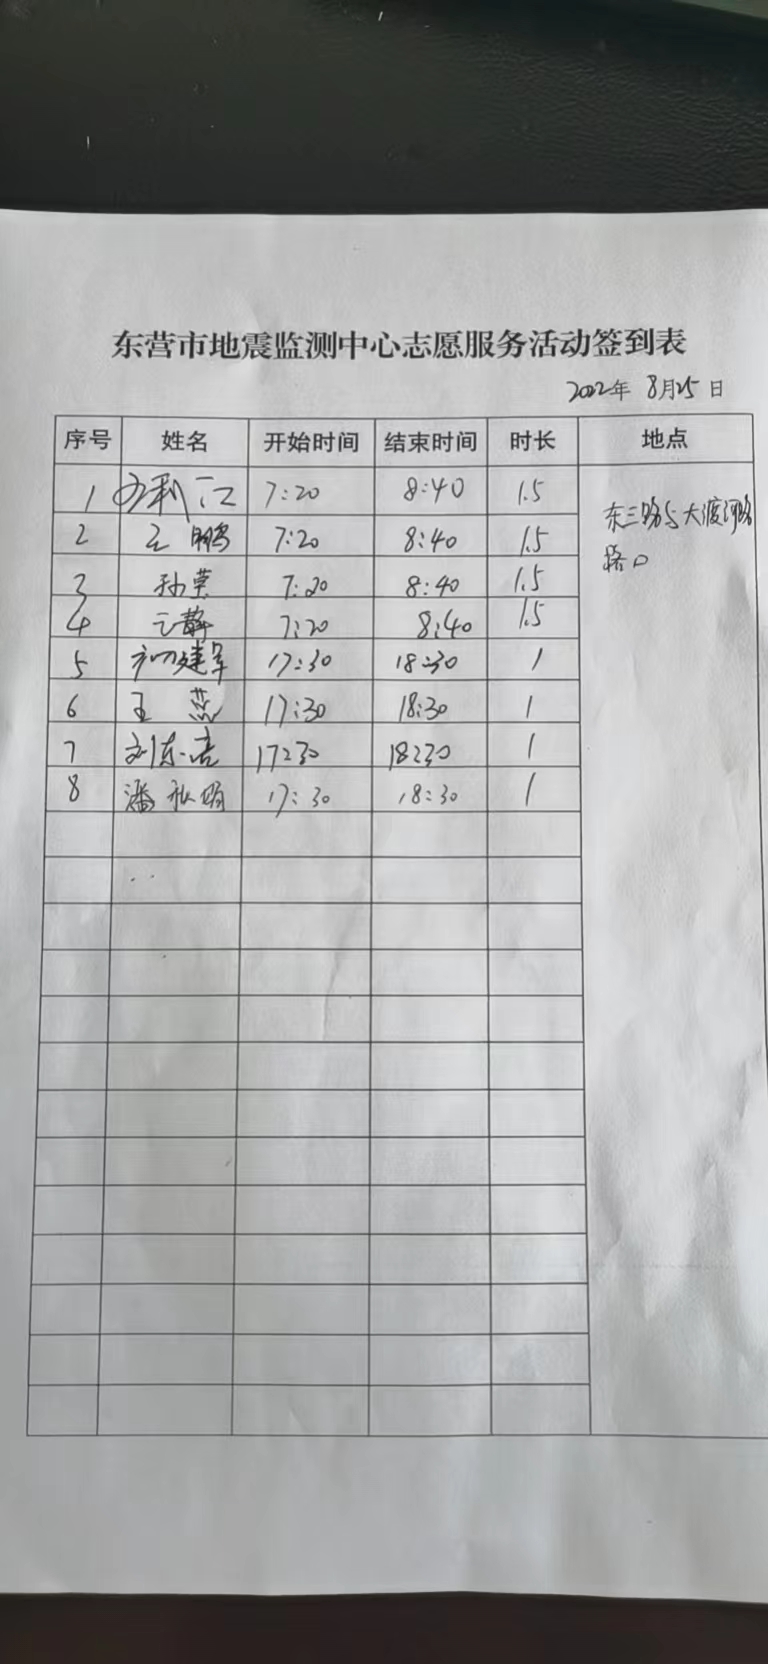 东营市地震监测中心志愿服务活动签到表
2022年 8月25日
序号 姓名 开始时间 结束时间 时长 地点
1 利江 7:20 8:40 1.5 东三路与大渡河路
2 王鹏 7:20 8:40 1.5 路口
3 孙荣 7:20 8:40 1.5
4 王静 7:20 8:40 1.5
5 建军 17:30 18:30 1
6 王蕊 17:30 18:30 1
7 刘东 17:30 18:30 1
8 潘秋娟 17:30 18:30 1